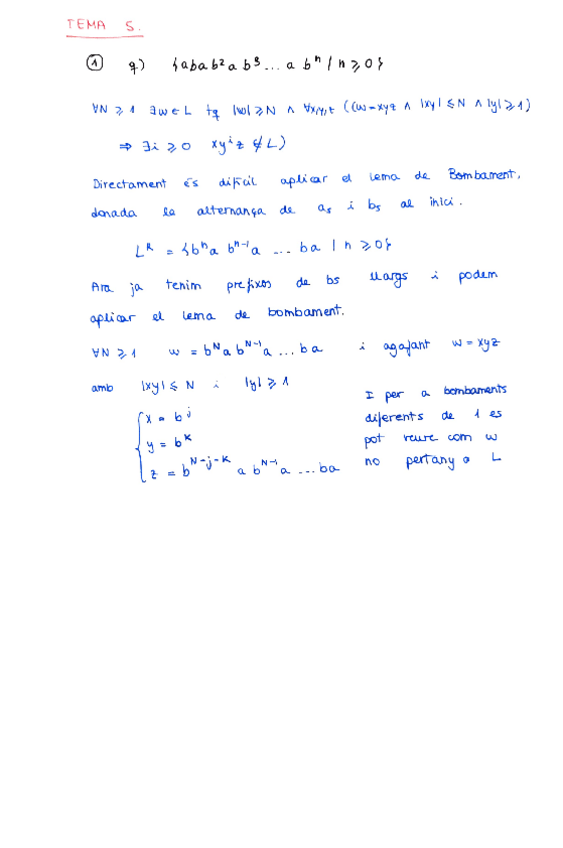 TEMA 5.
① q) {abab²ab³...abⁿ | n ⩾ 0}
∀N ⩾ 1 ∃w ∈ L tq |w| ⩾ N ∧ ∀x,y,z ((w = xyz ∧ |xy| ⩽ N ∧ |y| ⩾ 1)
⇒ ∃i ⩾ 0 xyⁱz ∉ L)
Directament és difícil aplicar el lema de Bombament,
donada la alternança de as i bs al inici.
Lᴿ = {bⁿa bⁿ⁻¹a ... ba | n ⩾ 0}
Ara ja tenim prefixos de bs llargs i podem
aplicar el lema de bombament.
∀N ⩾ 1 w = bᴺa bᴺ⁻¹a ... ba i agafant w = xyz
amb |xy| ⩽ N i |y| ⩾ 1
x = bʲ
y = bᴷ
z = bᴺ⁻ʲ⁻ᴷ a bᴺ⁻¹a ... ba
I per a bombaments
diferents de 1 es
pot veure com w
no pertany a L